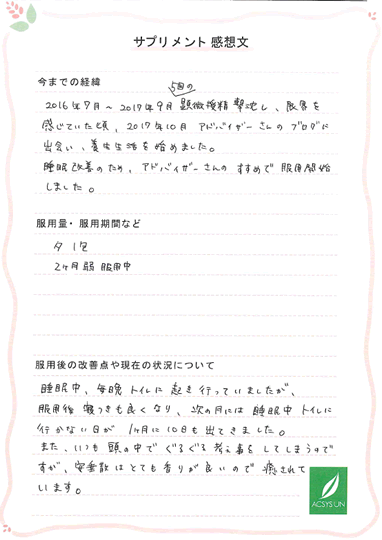 サプリメント 感想文
今までの経緯
5回の
2016年7月～2017年9月 顕微授精撃沈し、限界を
感じていた頃、2017年10月 アドバイザーさんのブログに
出会い、養生生活を始めました。
睡眠改善のため、アドバイザーさんのすすめで服用開始
しました。
服用量・服用期間など
夕 1包
2ヶ月弱 服用中
服用後の改善点や現在の状況について
睡眠中、毎晩トイレに起き行っていましたが、
服用後 寝つきも良くなり、次の月には睡眠中トイレに
行かない日が 1ヶ月に10日も出てきました。
また、いつも頭の中でぐるぐる考え事をしてしまうので
すが、安奎散はとても香りが良いので癒されて
います。
ACSYSUN